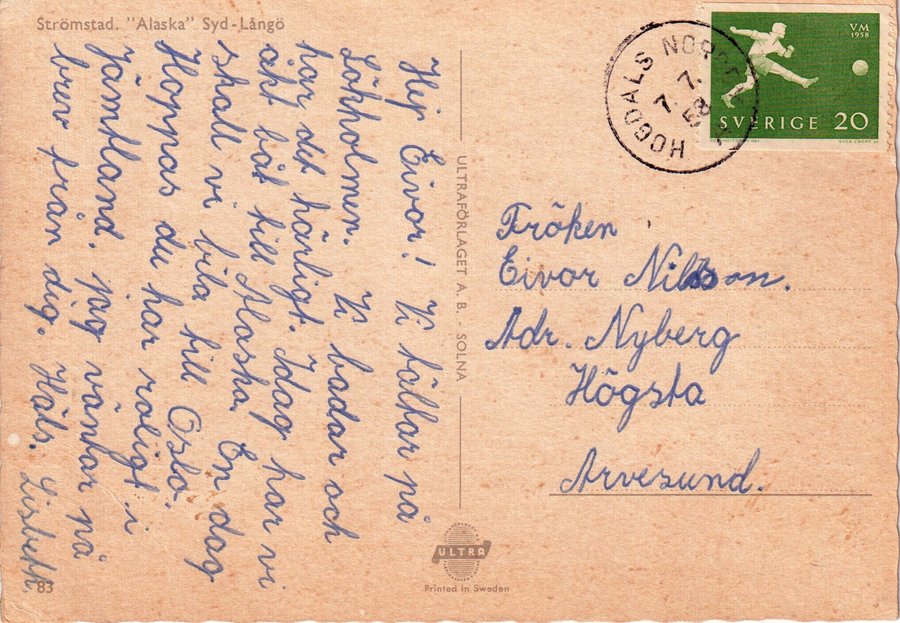 Strömstad. "Alaska" Syd-Långö
Hej Eivor! Vi tältar på
Lökholmen. Vi badar och
har det härligt. Idag har vi
åkt båt till Alaska. En dag
skall vi bila till Oslo.
Hoppas du har roligt i
Jämtland. jag väntar på
brev från dig. Häls. Lisbeth
83
ULTRAFÖRLAGET A.B. - SOLNA
ULTRA
Printed in Sweden
HOGDALS NORD
7. 7.
58
VM
1958
SVERIGE 20
Fröken
Eivor Nilsson.
Adr. Nyberg
Högsta
Arvesund.